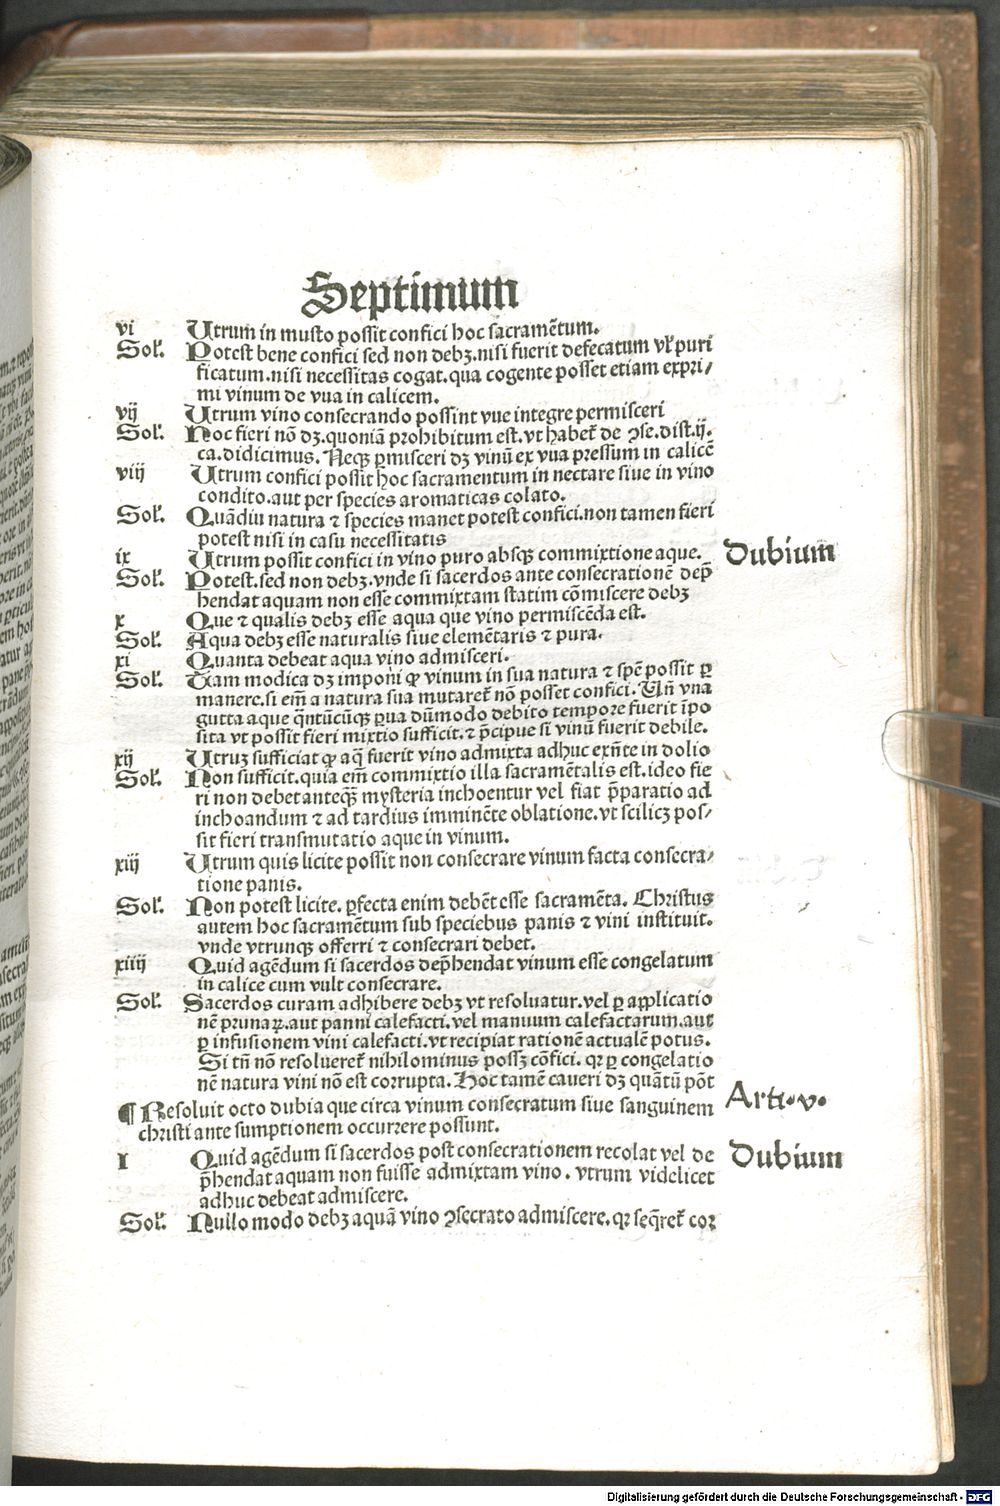 Septimum
vi Utrum in musto possit confici hoc sacramētum.
Sol'. Potest bene confici sed non debꝫ.nisi fuerit defecatum vl' puri
ficatum.nisi necessitas cogat.qua cogente posset etiam expri/
mi vinum de vua in calicem.
vij Utrum vino consecrando possint vue integre permisceri
Sol'. Hoc fieri nō dꝫ.quoniā prohibitum est.vt habet' de ꝯse.dist.ij.
ca.didicimus. Neqꝫ ꝑmisceri dꝫ vinū ex vua pressum in calicē
viij Utrum confici possit hoc sacramentum in nectare siue in vino
condito.aut per species aromaticas colato.
Sol'. Quādiu natura ⁊ species manet potest confici.non tamen fieri
potest nisi in casu necessitatis
ix Utrum possit confici in vino puro absqꝫ commixtione aque. Dubium
Sol'. Potest.sed non debꝫ.vnde si sacerdos ante consecrationē dep̄
hendat aquam non esse commixtam statim cōmiscere debꝫ
x Que ⁊ qualis debꝫ esse aqua que vino permiscēda est.
Sol'. Aqua debꝫ esse naturalis siue elemētaris ⁊ pura.
xi Quanta debeat aqua vino admisceri.
Sol'. Tam modica dꝫ imponi ꝙ vinum in sua natura ⁊ spē possit ꝑ
manere.si em̄ a natura sua mutaret' nō posset confici. Un̄ vna
gutta aque q̄ntūcūqꝫ ꝑua dūmodo debito tempore fuerit īpo
sita vt possit fieri mixtio sufficit.⁊ p̄cipue si vinū fuerit debile.
xij Utruꝫ sufficiat ꝙ aq̄ fuerit vino admixta adhuc exn̄te in dolio
Sol'. Non sufficit.quia em̄ commixtio illa sacramētalis est.ideo fie
ri non debet anteqꝫ̄ mysteria inchoentur vel fiat p̄paratio ad
inchoandum ⁊ ad tardius imminēte oblatione.vt scilicꝫ pos/
sit fieri transmutatio aque in vinum.
xiij Utrum quis licite possit non consecrare vinum facta consecra/
tione panis.
Sol'. Non potest licite. ꝑfecta enim debēt esse sacramēta. Christus
autem hoc sacramētum sub speciebus panis ⁊ vini instituit.
vnde vtrunqꝫ offerri ⁊ consecrari debet.
xiiij Quid agēdum si sacerdos dep̄hendat vinum esse congelatum
in calice cum vult consecrare.
Sol'. Sacerdos curam adhibere debꝫ vt resoluatur.vel ꝑ applicatio
nē prunaꝝ.aut panni calefacti.vel manuum calefactarum.aut
ꝑ infusionem vini calefacti.vt recipiat rationē actualē potus.
Si tn̄ nō resolueret' nihilominus possꝫ cōfici. qꝛ ꝑ congelatio
nē natura vini nō est corrupta. Hoc tamē caueri dꝫ quātū pōt
¶ Resoluit octo dubia que circa vinum consecratum siue sanguinem Arti.v.
christi ante sumptionem occurrere possunt.
I Quid agēdum si sacerdos post consecrationem recolat vel de Dubium
p̄hendat aquam non fuisse admixtam vino. vtrum videlicet
adhuc debeat admiscere.
Sol'. Nullo modo debꝫ aquā vino ꝯsecrato admiscere.qꝛ seq̄ret' coꝛ
Digitalisierung gefördert durch die Deutsche Forschungsgemeinschaft - DFG